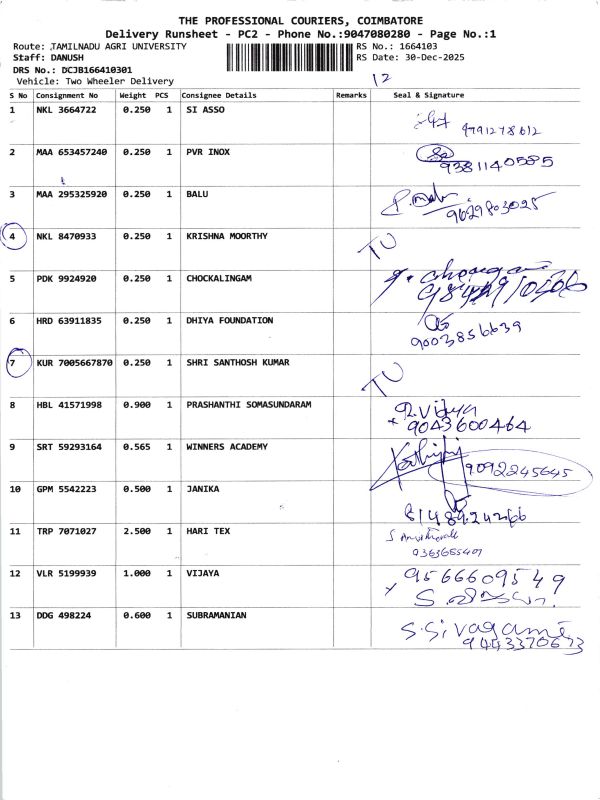 THE PROFESSIONAL COURIERS, COIMBATORE
Delivery Runsheet - PC2 - Phone No.:9047080280 - Page No.:1
Route: ,TAMILNADU AGRI UNIVERSITY RS No.: 1664103
Staff: DANUSH RS Date: 30-Dec-2025
DRS No.: DCJB166410301
Vehicle: Two Wheeler Delivery 12
S No Consignment No Weight PCS Consignee Details Remarks Seal & Signature
1 NKL 3664722 0.250 1 SI ASSO
9791278612
2 MAA 653457240 0.250 1 PVR INOX
9381140585
3 MAA 295325920 0.250 1 BALU
9629803025
4 NKL 8470933 0.250 1 KRISHNA MOORTHY TU
5 PDK 9924920 0.250 1 CHOCKALINGAM
6 HRD 63911835 0.250 1 DHIYA FOUNDATION
9003856639
7 KUR 7005667870 0.250 1 SHRI SANTHOSH KUMAR TU
8 HBL 41571998 0.900 1 PRASHANTHI SOMASUNDARAM R.Vidya
9043600464
9 SRT 59293164 0.565 1 WINNERS ACADEMY
9092245645
10 GPM 5542223 0.500 1 JANIKA
8148924266
11 TRP 7071027 2.500 1 HARI TEX
9363655401
12 VLR 5199939 1.000 1 VIJAYA 9566609549
13 DDG 498224 0.600 1 SUBRAMANIAN S.Sivagami
9443370673